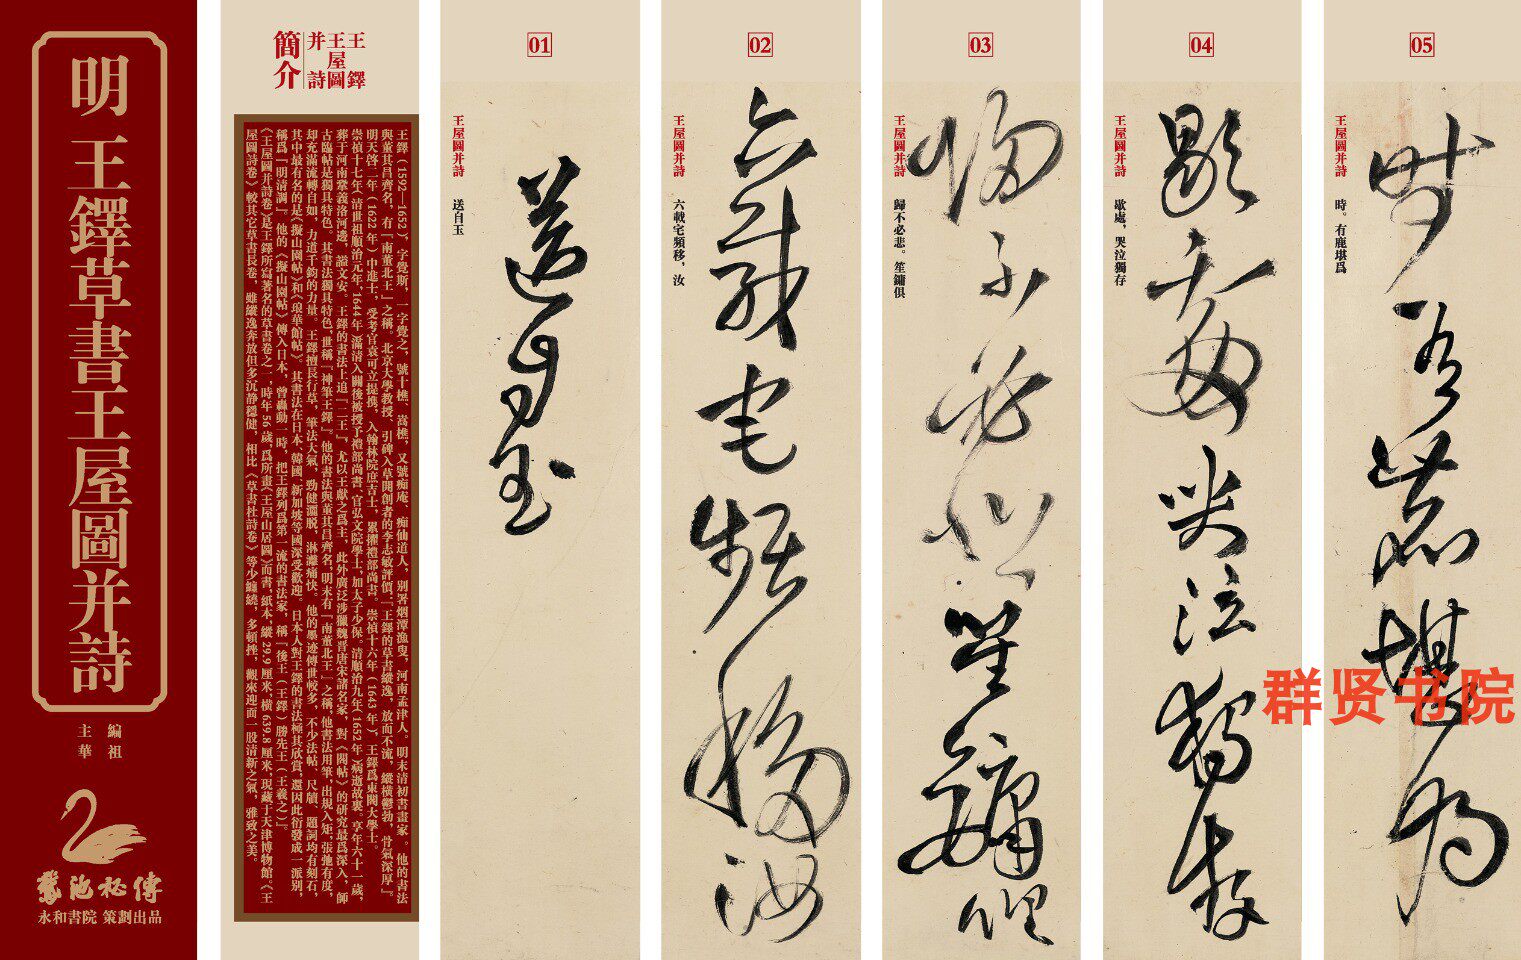 明 王鐸草書王屋圖并詩
編祖
主華
鵞池秘傳
永和書院 策劃出品
王鐸
王屋圖
并詩
簡介
王鐸（1592—1652），字覺斯，一字覺之，號十樵、嵩樵，又號痴庵、痴仙道人，别署烟潭漁叟，河南孟津人。明末清初書畫家。他的書法
與董其昌齊名，有『南董北王』之稱。北京大學教授、引碑入草開創者的李志敏評價：『王鐸的草書縱逸，放而不流，縱横鬱勃，骨氣深厚』。
明天啓二年（1622年）中進士，受考官袁可立提携，入翰林院庶吉士，累擢禮部尚書。崇禎十六年（1643年），王鐸爲東閣大學士。
崇禎十七年（清世祖順治元年，1644年）滿清入關後被授予禮部尚書、官弘文院學士，加太子少保。清順治九年（1652年）病逝故裏。享年六十一歲，
葬于河南鞏義洛河邊，謚文安。王鐸的書法上追『二王』，尤以王獻之爲主，此外廣泛涉獵魏晋唐宋諸名家，對《閣帖》的研究最爲深入，師
古臨帖是獨具特色。其書法獨具特色，世稱『神筆王鐸』。他的書法與董其昌齊名，明末有『南董北王』之稱。他書法用筆，出規入矩，張弛有度，
却充滿流轉自如，力道千鈞的力量。王鐸擅長行草，筆法大氣，勁健灑脱，淋灕痛快。他的墨迹傳世較多，不少法帖、尺牘、題詞均有刻石，
其中最有名的是《擬山園帖》和《琅華館帖》。其書法在日本、韓國、新加坡等國深受歡迎。日本人對王鐸的書法極其欣賞，還因此衍發成一派别，
稱爲『明清調』，他的《擬山園帖》傳入日本，曾轟動一時，把王鐸列爲第一流的書法家，稱『後王（王鐸）勝先王（王羲之）』。
《王屋圖并詩卷》是王鐸所寫著名的草書卷之一，時年56歲，爲所畫《王屋山居圖》而書，紙本，縱29.9厘米，横639.8厘米，現藏于天津博物館。《王
屋圖詩卷》較其它草書長卷，雖縱逸奔放但多沉静穩健，相比《草書杜詩卷》等少纏繞，多頓挫，觀來迎面一股清新之氣，雅致之美。
01
王屋圖并詩 送自玉
送自玉
02
王屋圖并詩 六載宅頻移，汝
六載宅頻移汝
03
王屋圖并詩 歸不必悲。笙鏞俱
歸不必悲笙鏞俱
04
王屋圖并詩 歇處，哭泣獨存
歇處哭泣獨存
05
王屋圖并詩 時。有鹿堪爲
時有鹿堪爲
群贤书院